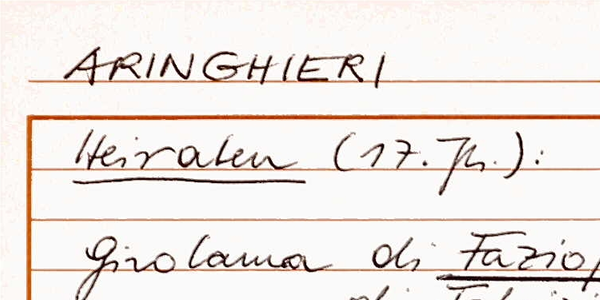 ARINGHIERI
Heiraten (17. Jh.):
Girolama di Fazio
di